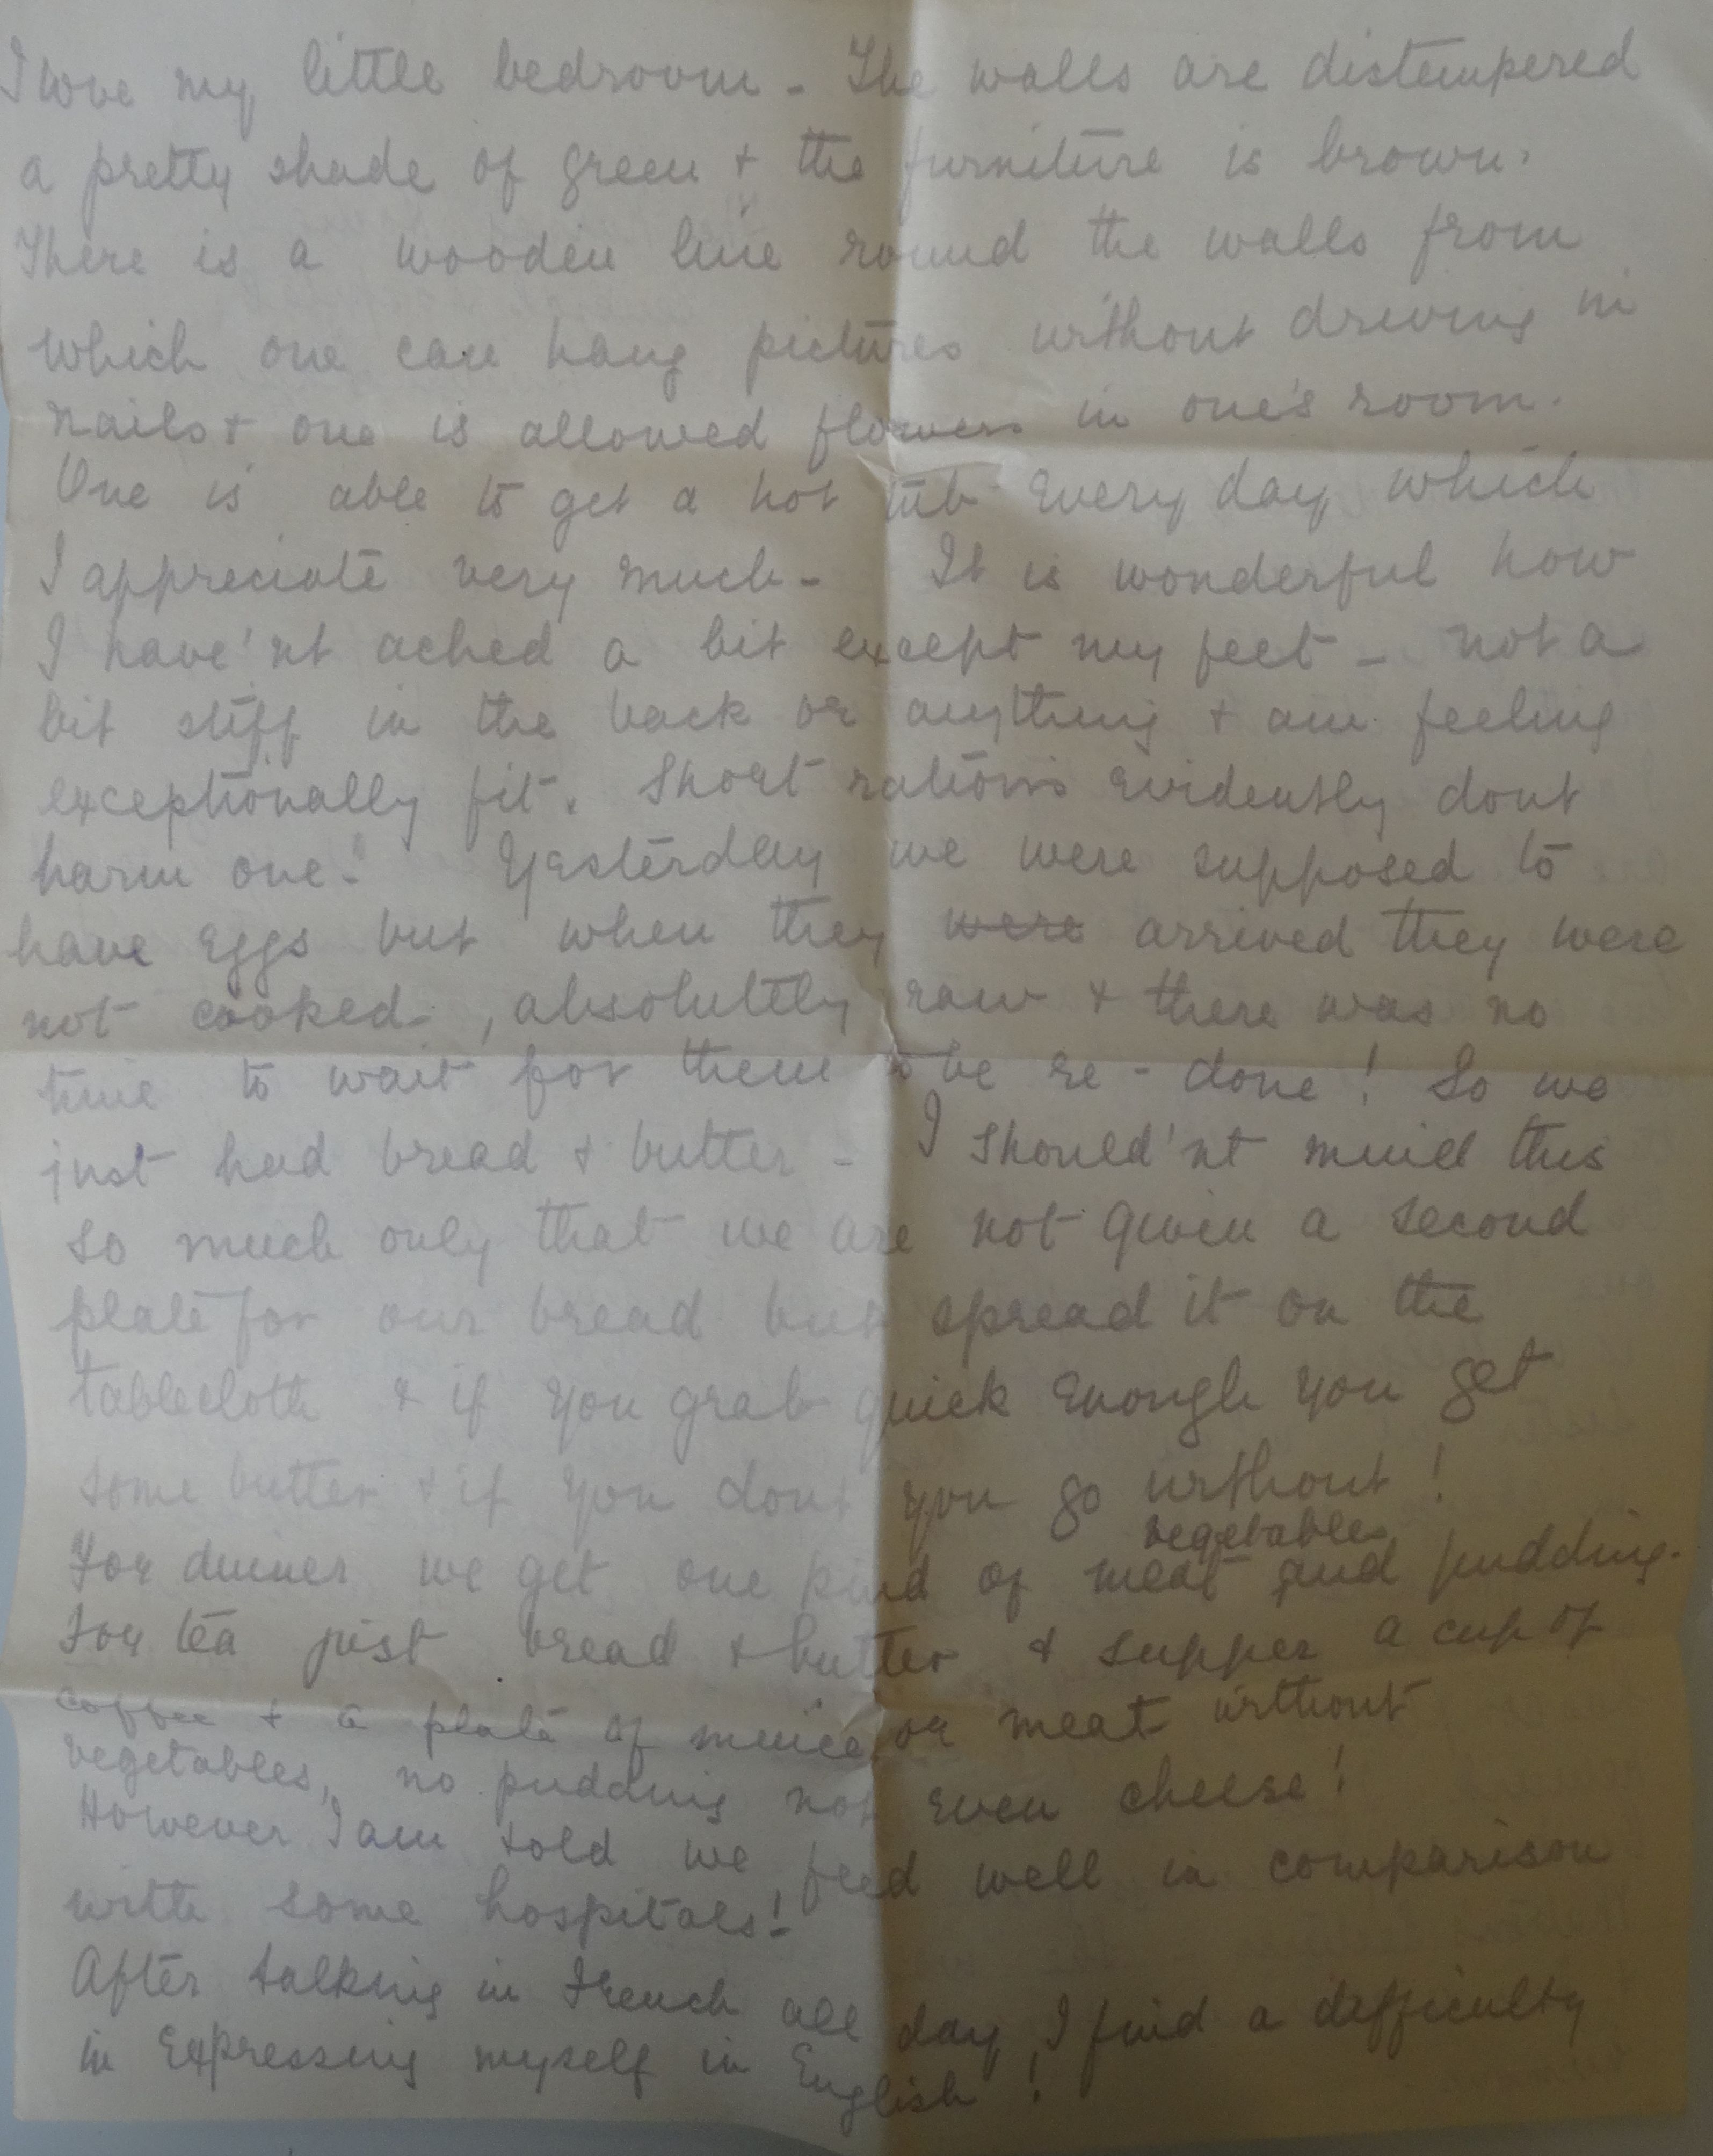 I love my little bedroom - The walls are distempered
a pretty shade of green + the furniture is brown.
There is a wooden line round the walls from
which one can hang pictures without driving in
nails + one is allowed flowers in one's room.
One is able to get a hot tub every day which
I appreciate very much - It is wonderful how
I have'nt ached a bit except my feet - not a
bit stiff in the back or anything + am feeling
exceptionally fit. Short rations evidently dont
harm one! Yesterday we were supposed to
have eggs but when they were arrived they were
not cooked, absolutely raw + there was no
time to wait for them to be re-done! So we
just had bread + butter - I should'nt mind this
so much only that we are not given a second
plate for our bread but spread it on the
tablecloth & if you grab quick enough you get
some butter + if you dont you go without!
For dinner we get one kind of meat vegetables and pudding.
For tea just bread + butter & supper a cup of
coffee + a plate of mince or meat without
vegetables, no pudding not even cheese!
However I am told we feed well in comparison
with some hospitals!
After talking in French all day I find a difficulty
in expressing myself in English!